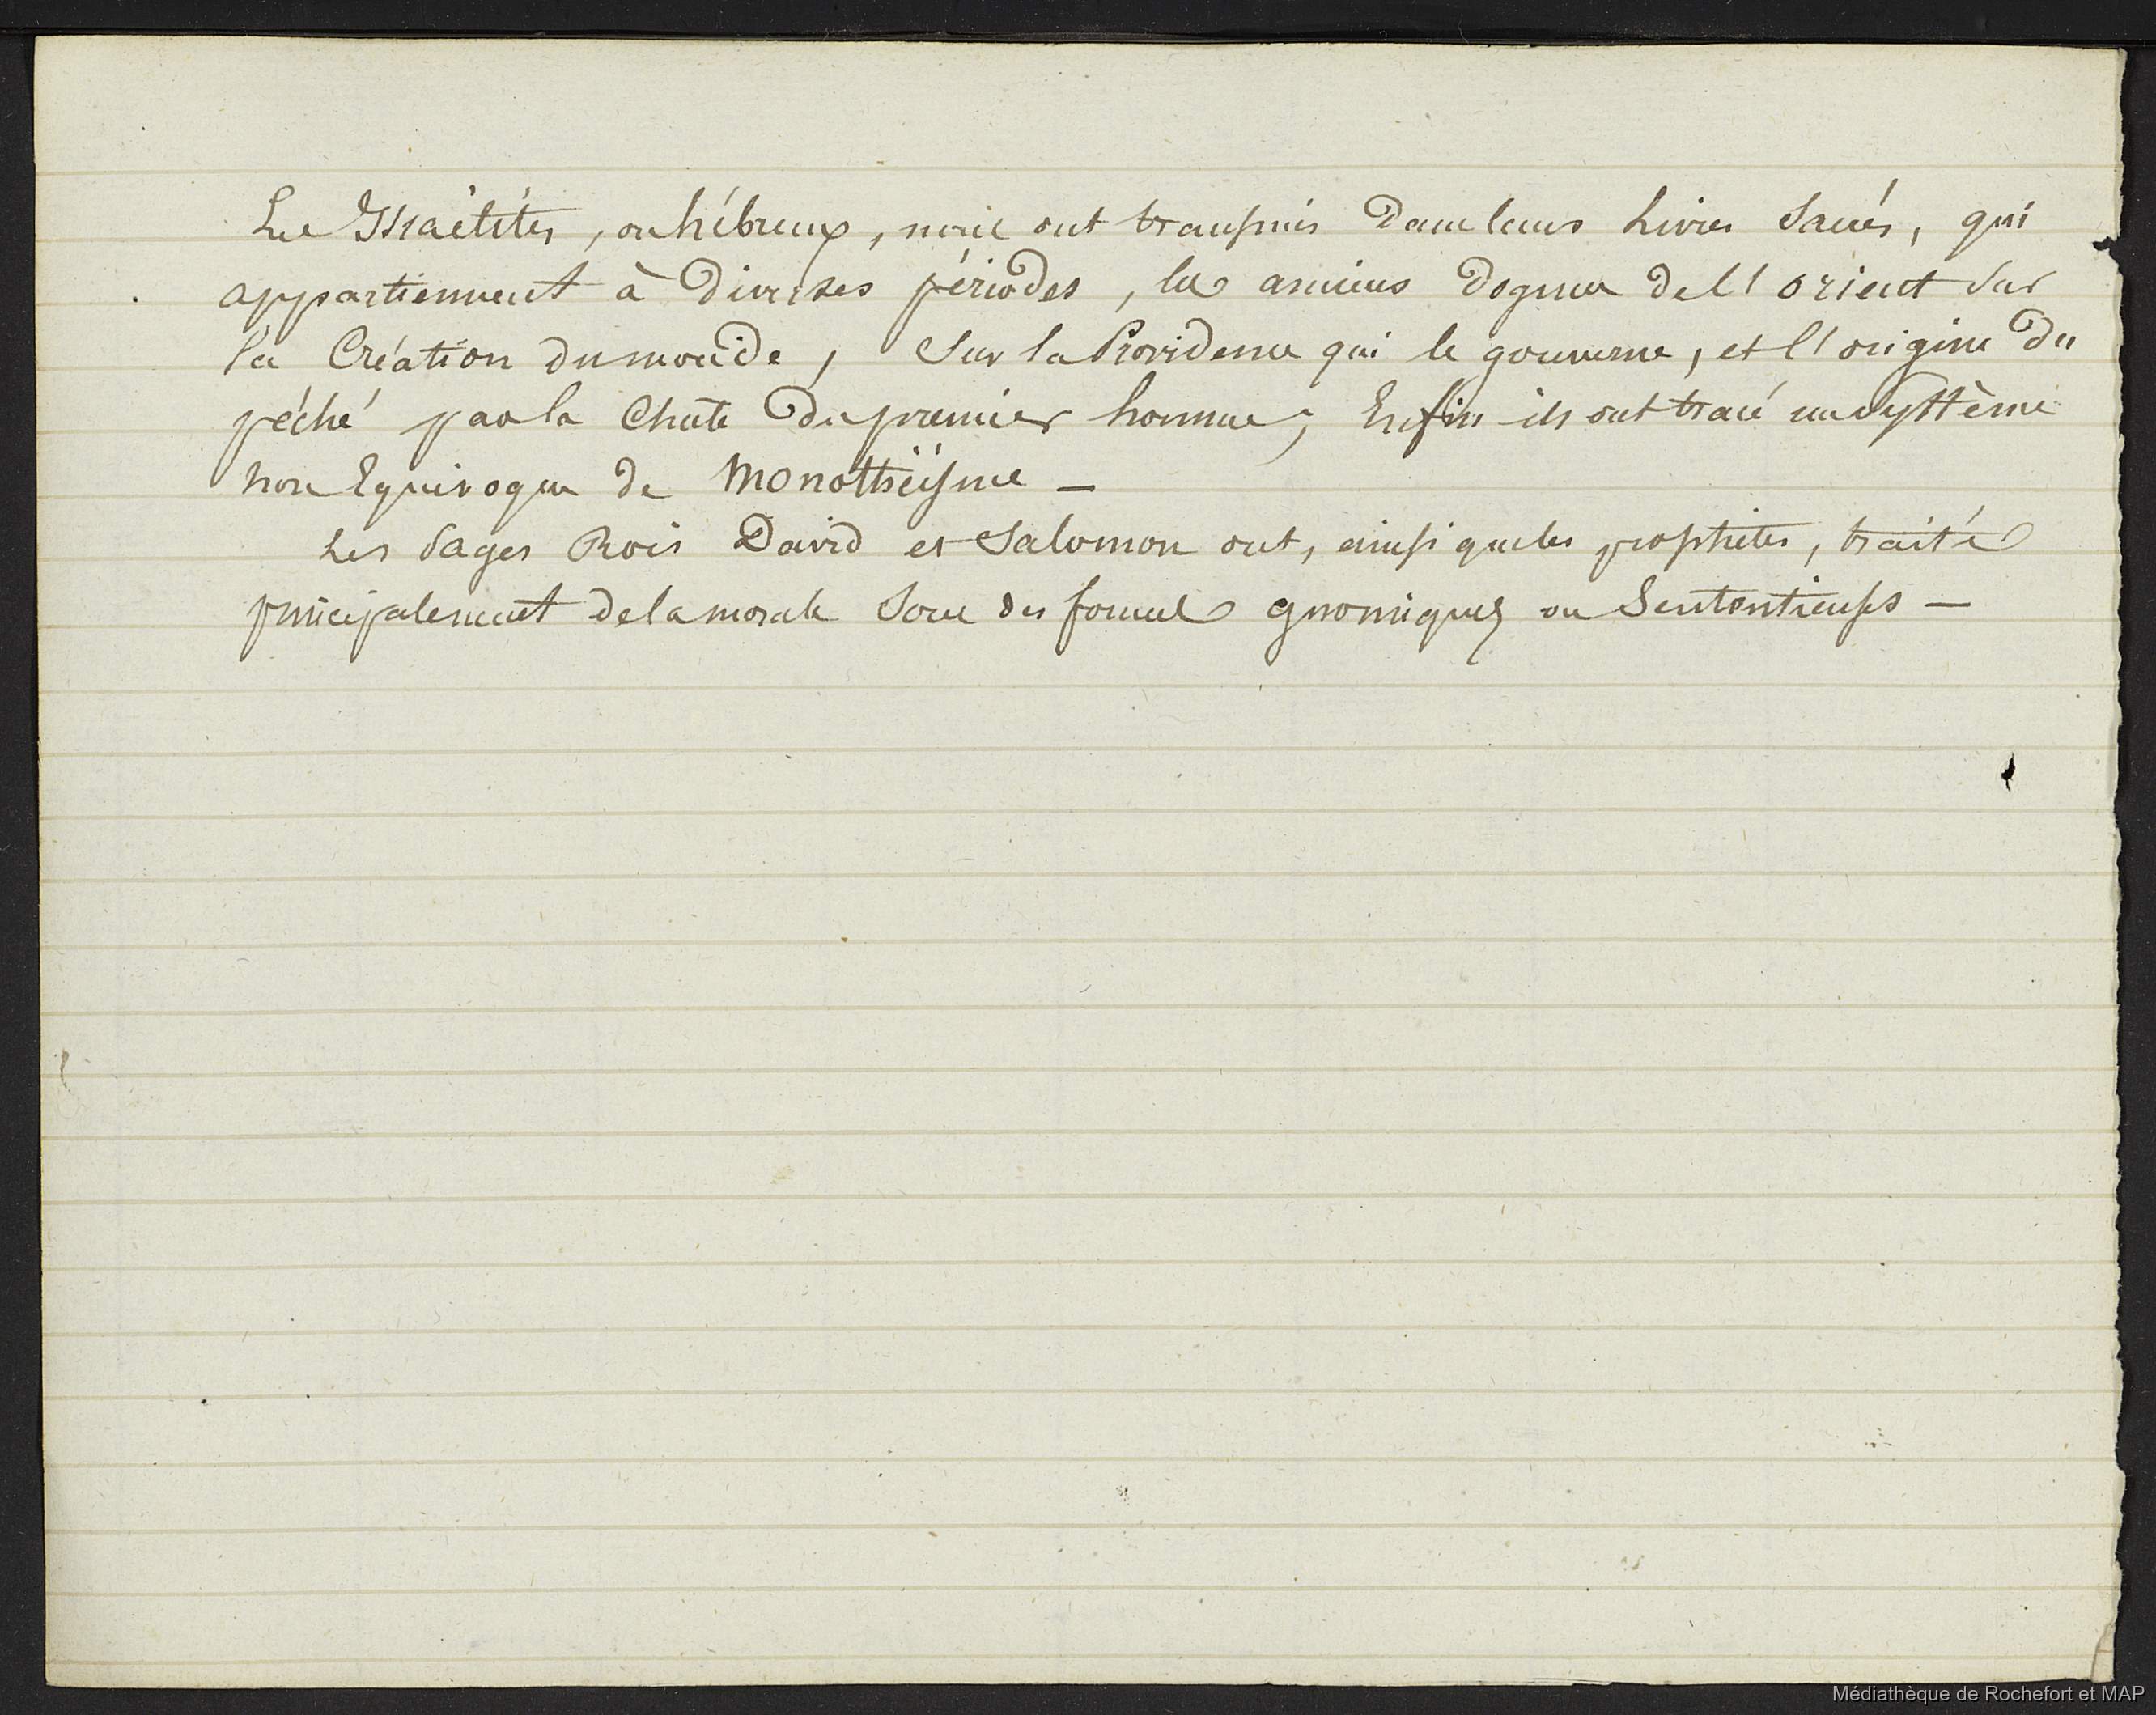 Les Israëlites, ou hébreux, nous ont transmis dans leurs Livres Sacrés, qui
appartiennent à diverses périodes, les anciens dogmes de l'orient sur
la Création du monde, Sur la Providence qui le gouverne, et l'origine du
péché par la Chûte du premier homme; Enfin ils ont tracé un système
non Equivoque de Monothéïsme —
Les Sages Rois David et Salomon ont, ainsi que les prophètes, traité
principalement de la morale Sous des formes gnomiques ou Sententieuses —
Médiathèque de Rochefort et MAP